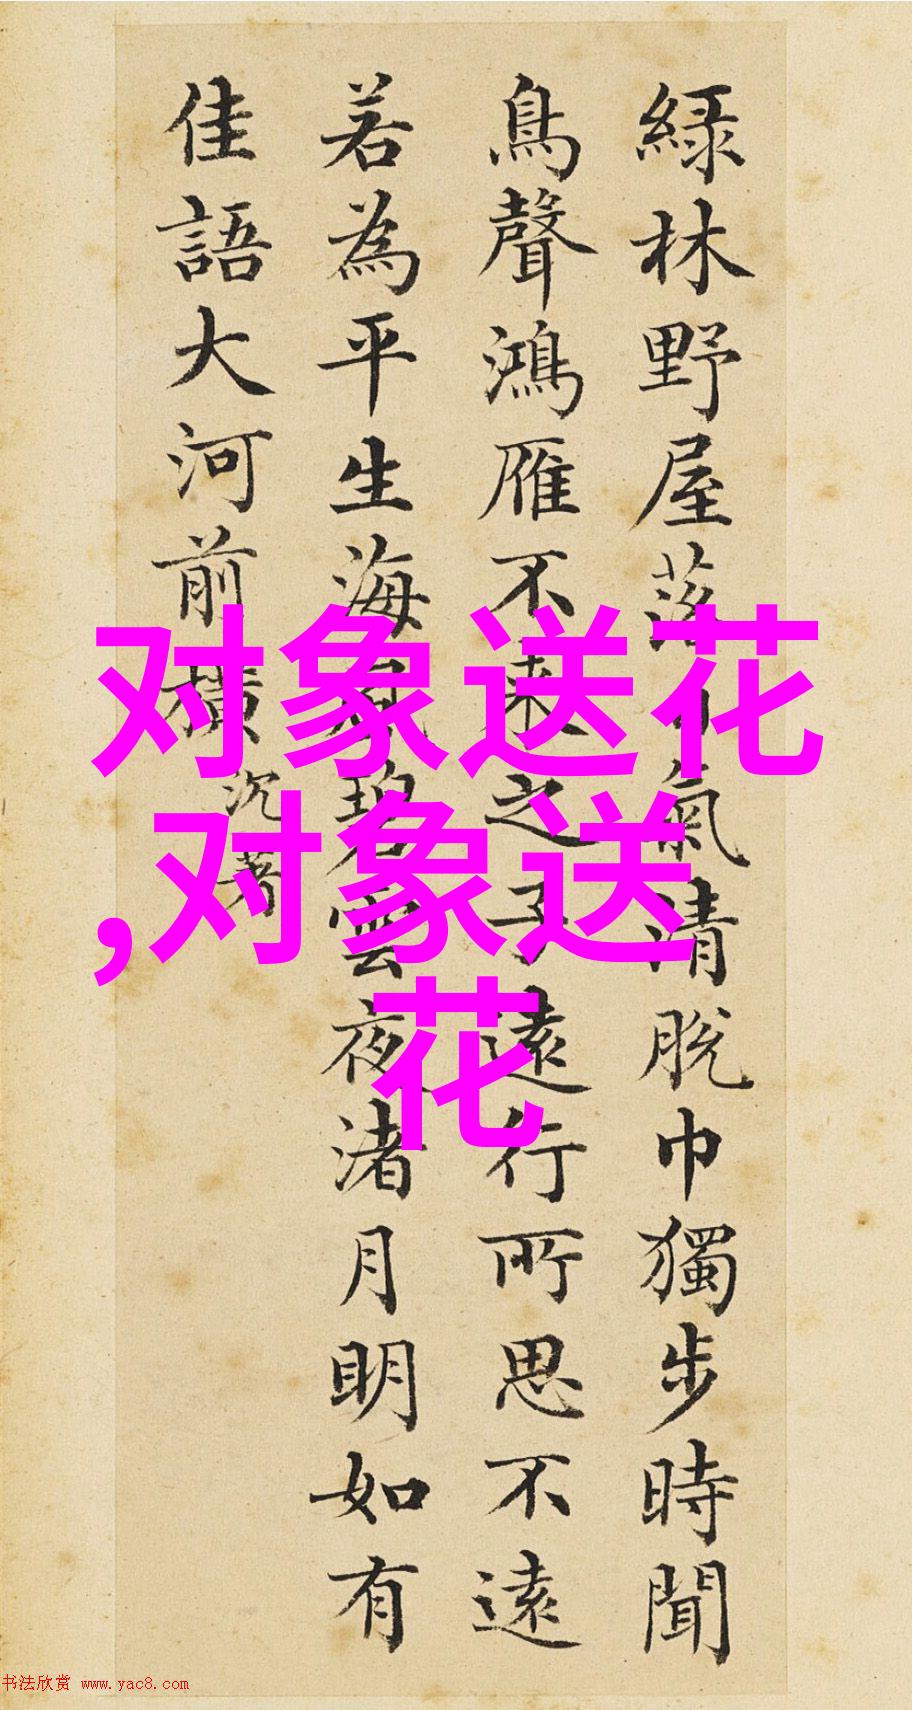 綠林野屋落日氣清脫巾獨步時聞
鳥聲鴻雁不來之子遠行所思不遠
若為平生海風碧雲夜渚月明如有
佳語大河前橫
沉著
对象送花
,对象送
花
书法欣赏 www.yac8.com